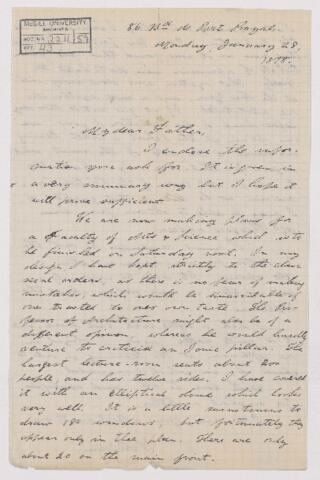 McGILL UNIVERSITY
ARCHIVES
ACC. NO. 2211/59
REF. 43
86 Bd. de Port Royal.
Monday, January 28,
1878.
My dear Father,
I enclose the infor-
mation you ask for. It is given in
a very summary way but I hope it
will prove sufficient.
We are now making plans for
a Faculty of Arts & Science which is to
be finished on Saturday next. In my
design I have kept strictly to the clas-
sical orders, as there is no fear of making
mistakes, which would be unavoidable if
one trusted to one's own taste. The Pro-
fessor of Architecture might also be of a
different opinion, whereas he would hardly
venture to criticise an Ionic pillar. The
largest lecture-room seats about 200
people, and has twelve sides. I have covered
it with an Elliptical dome which looks
very well. It is a little monotonous to
draw 180 windows, but fortunately they
appear only in the plan. There are only
about 20 on the main front.